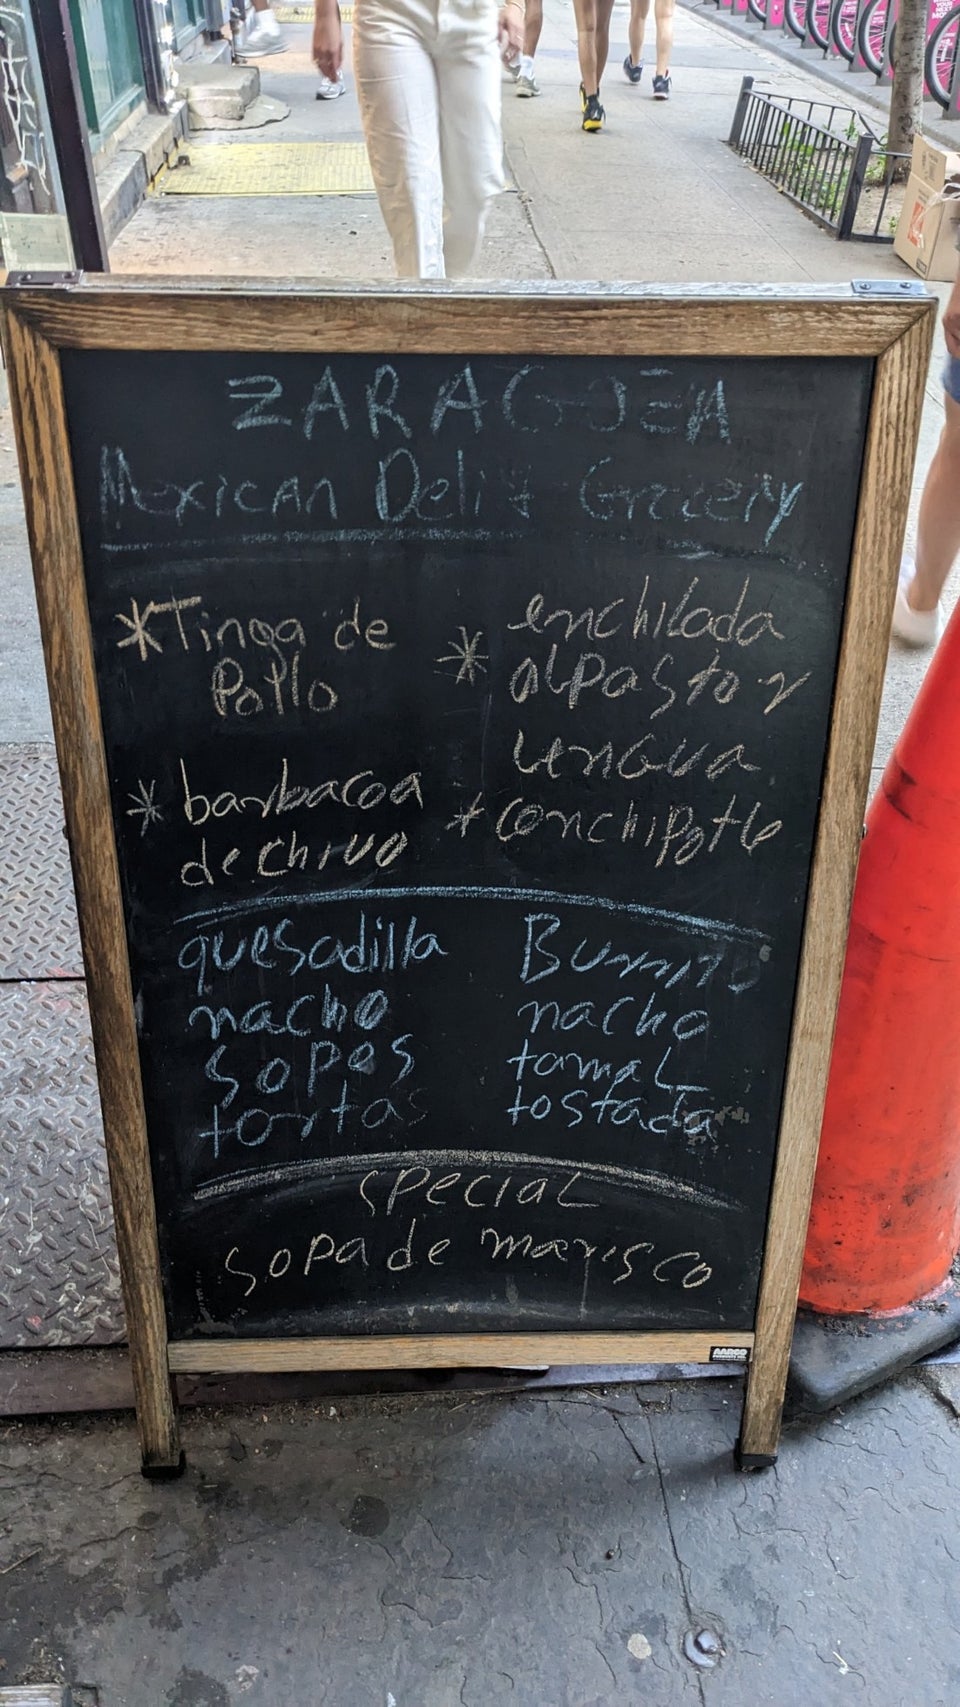 ZARAGOZA
Mexican Deli & Grocery
*Tinga de
Pollo
* barbacoa
de chivo
enchilada
* al Pastor
Lengua
* con chipotle
quesadilla
nacho
sopes
tortas
Burrito
nacho
tamal
tostada
special
sopa de marisco
AARCO